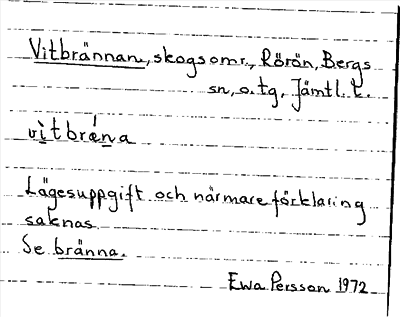 Vitbrännan, skogsomr., Rörön, Bergs
sn, o. tg, Jämtl. l.
vìtbréna
Lägesuppgift och närmare förklaring
saknas.
Se bränna.
Ewa Persson 1972